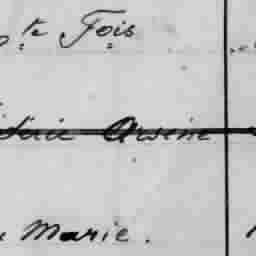 Ste Fois
Arsène
Marie.